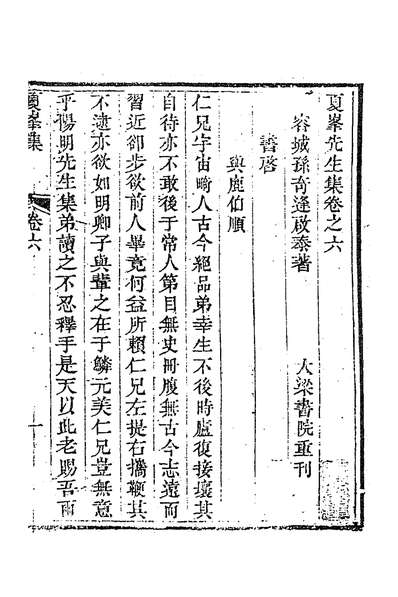 夏峯先生集卷之六
容城孫奇逢啟泰著
大梁書院重刊
書啓
與鹿伯順
仁兄宇宙畸人古今絕品弟幸生不後時廬復接壤其
自待亦不敢後于常人第目無史冊腹無古今志遠而
習近卻步欲前人畢竟何益所賴仁兄左提右攜鞭其
不逮亦欲如明卿子與輩之在于鱗元美仁兄豈無意
乎陽明先生集弟讀之不忍釋手是天以此老賜吾兩
夏峯集
卷六
一